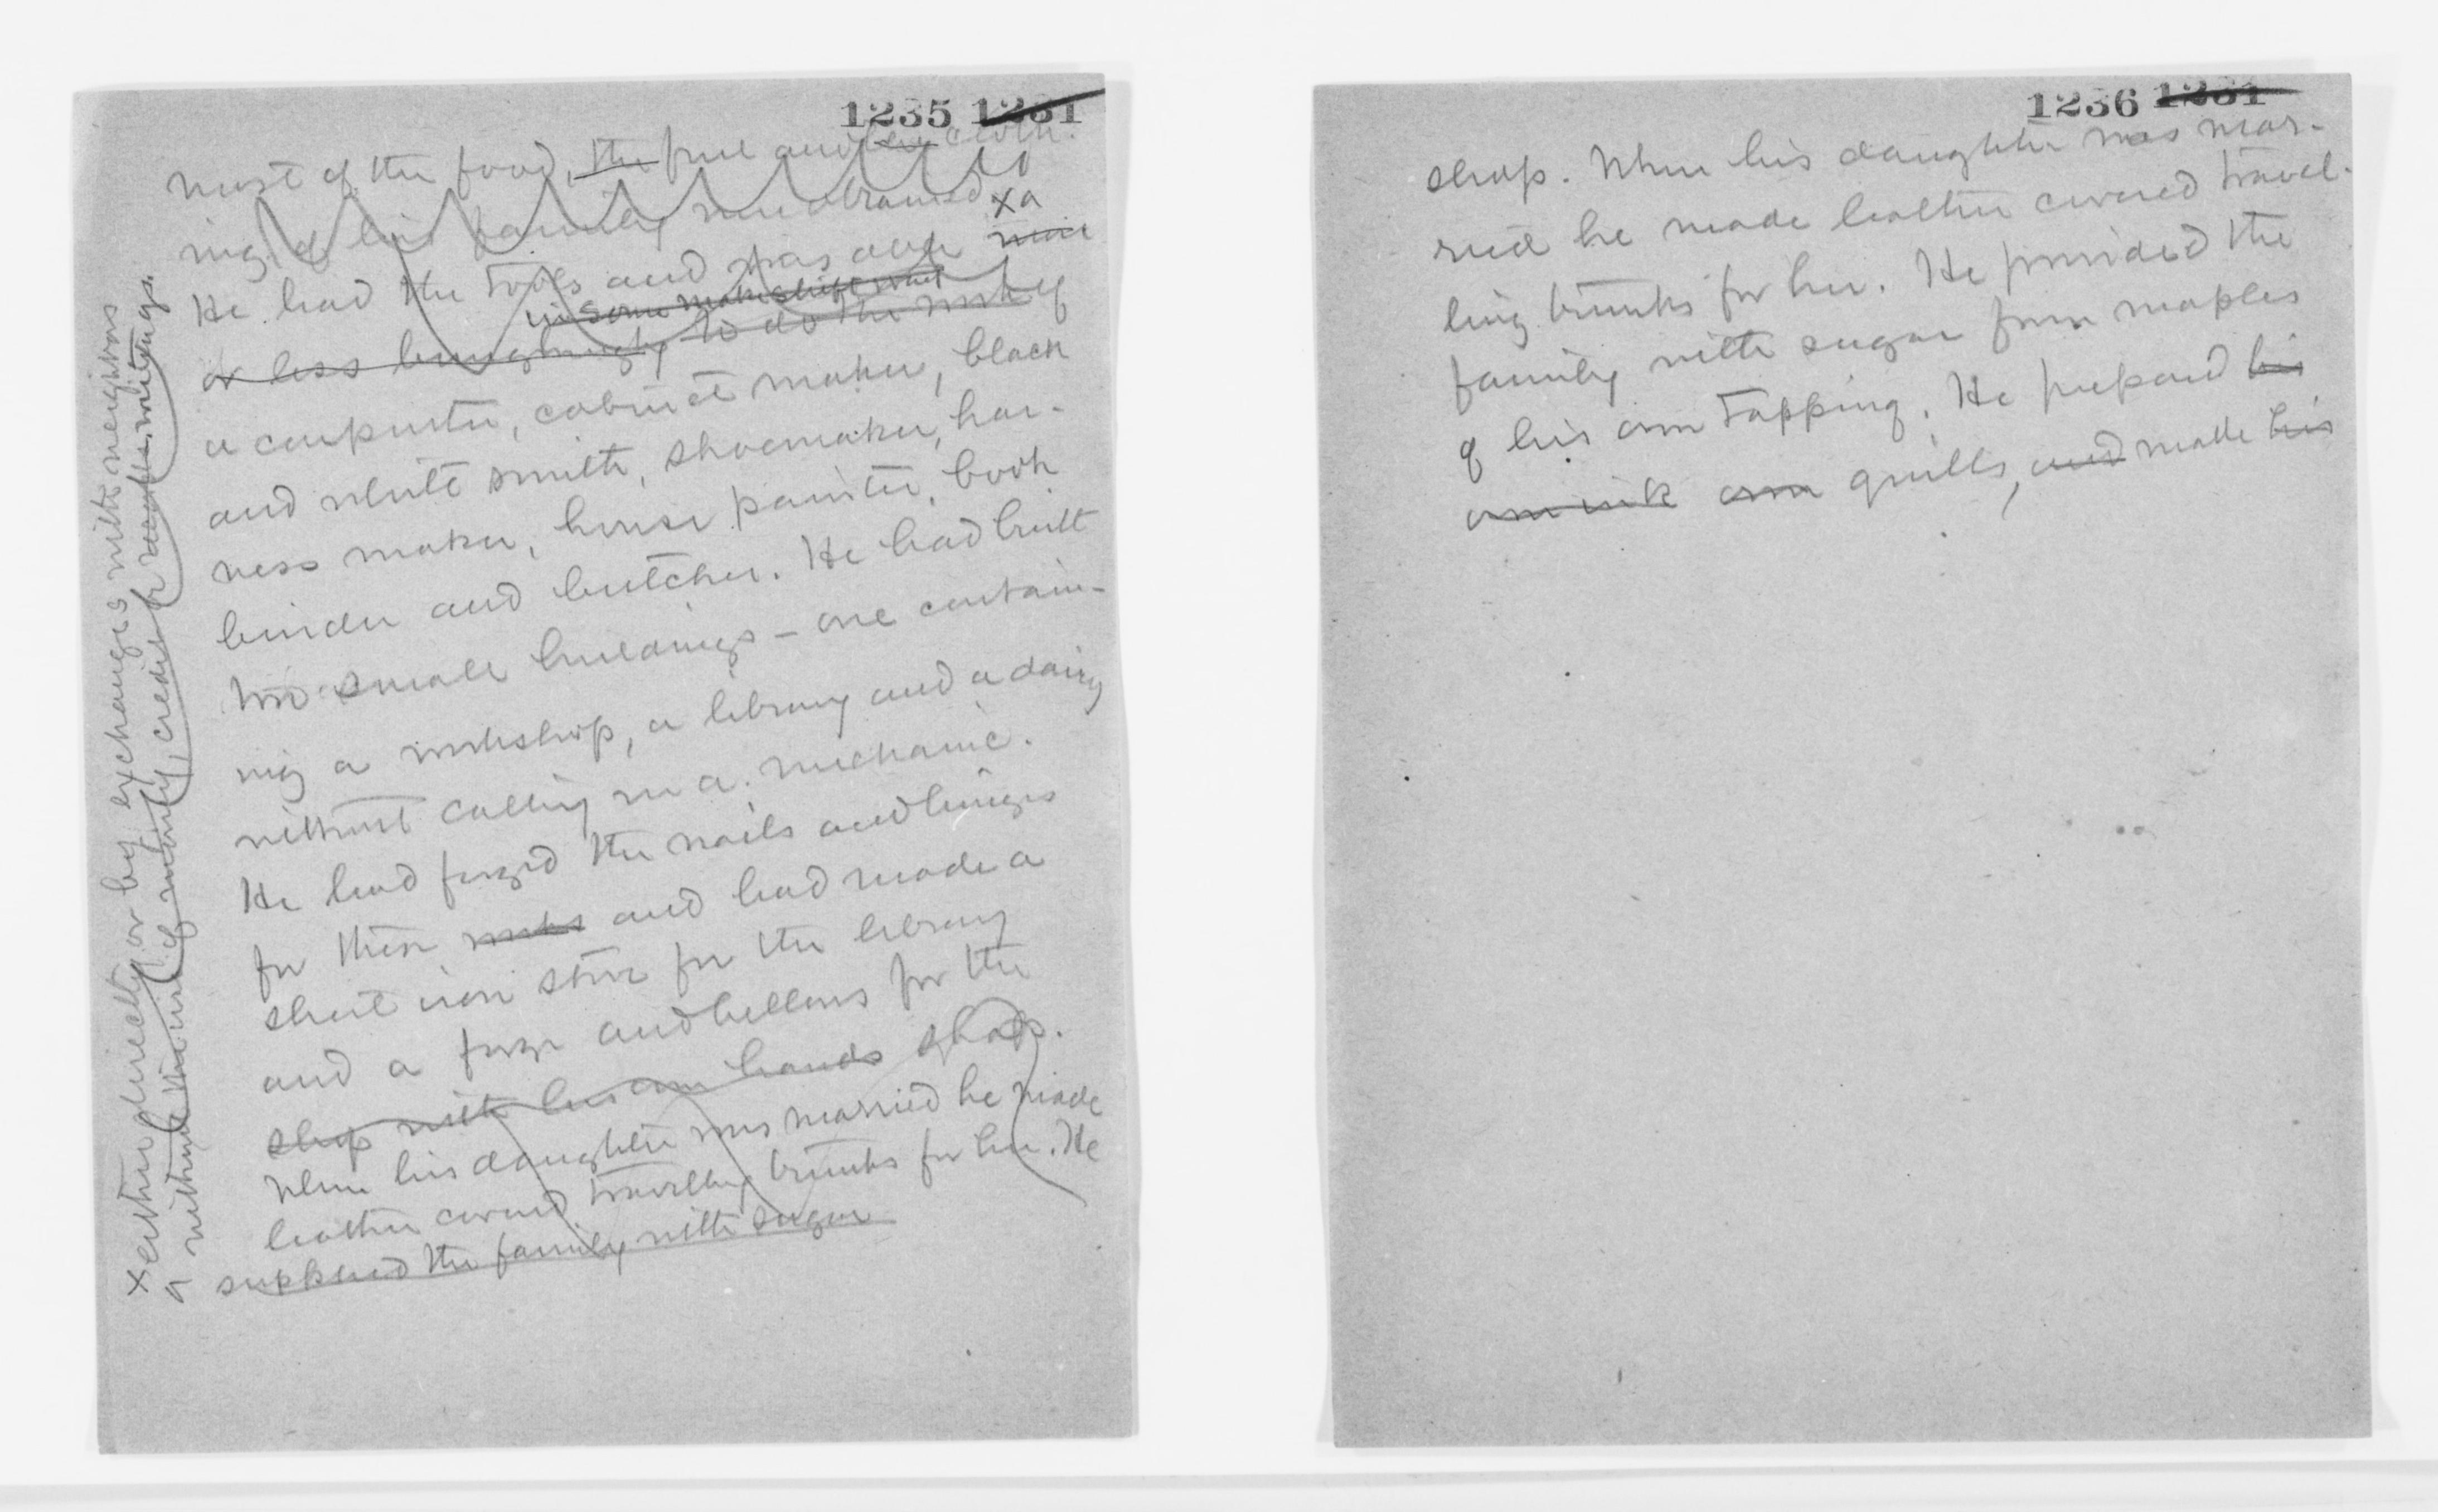 1235 1231
most of the food, the fuel and the cloth-
ing of his family were obtained. x a
He had the tools and was able more
in some makeshift way
or less bunglingly to do the work of
a carpenter, cabinet maker, black
and white smith, shoemaker, har-
ness maker, house painter, book
binder and butcher. He had built
two small buildings – one contain-
ing a workshop, a library and a dairy
without calling in a mechanic.
He had forged the nails and hinges
for these and had made a
sheet iron stove for the library
and a forge and bellows for the
shop with his own hands shop.
When his daughter was married he made
leather covered travelling trunks for her. He
supplied the family with sugar
x either directly or by exchanges with neighbors
a without the use of money, credit or
1236 1231
shop. When his daughter was mar-
ried he made leather covered travel-
ling trunks for her. He provided the
family with sugar from maples
of his own tapping. He prepared his
own ink own quills, and made his